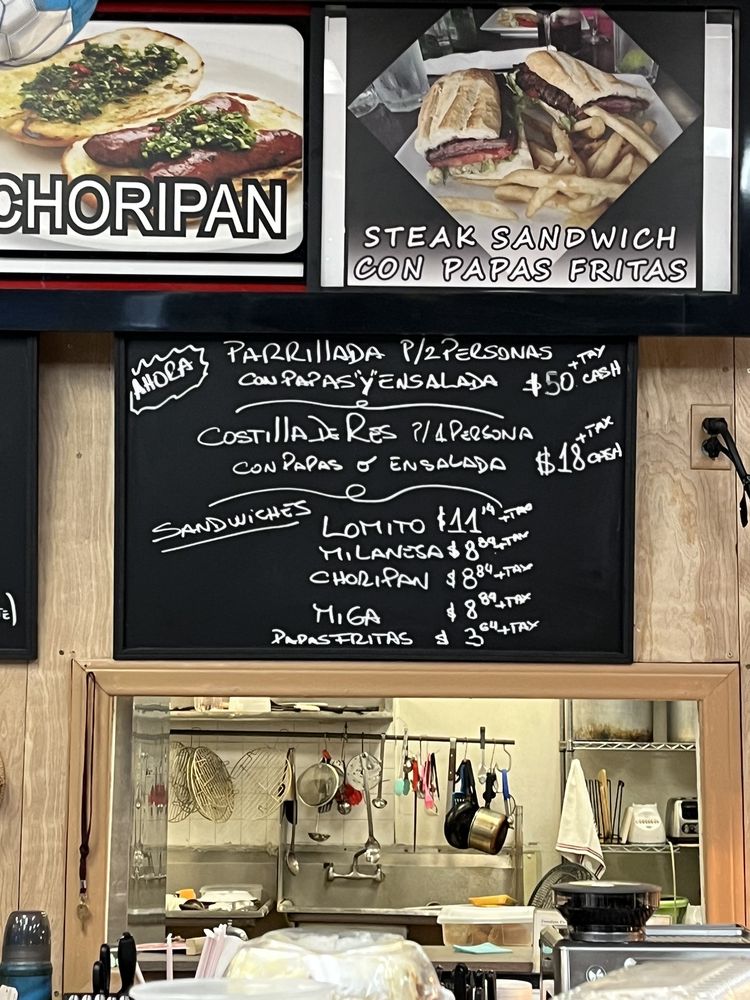 CHORIPAN
STEAK SANDWICH
CON PAPAS FRITAS
AHORA
PARRIllADA P/2 PERSONAS
CON PAPAS "Y" ENSALADA $50 +TAX CASH
COSTILLA DE RES P/1 PERSONA
CON PAPAS o ENSALADA $18 +TAX CASH
SANDWICHES
LOMITO $11 14 +TAX
MILANESA $8 89 +TAX
CHORIPAN $8 84 +TAX
MIGA $8 89 +TAX
PAPAS FRITAS $3 64 +TAX